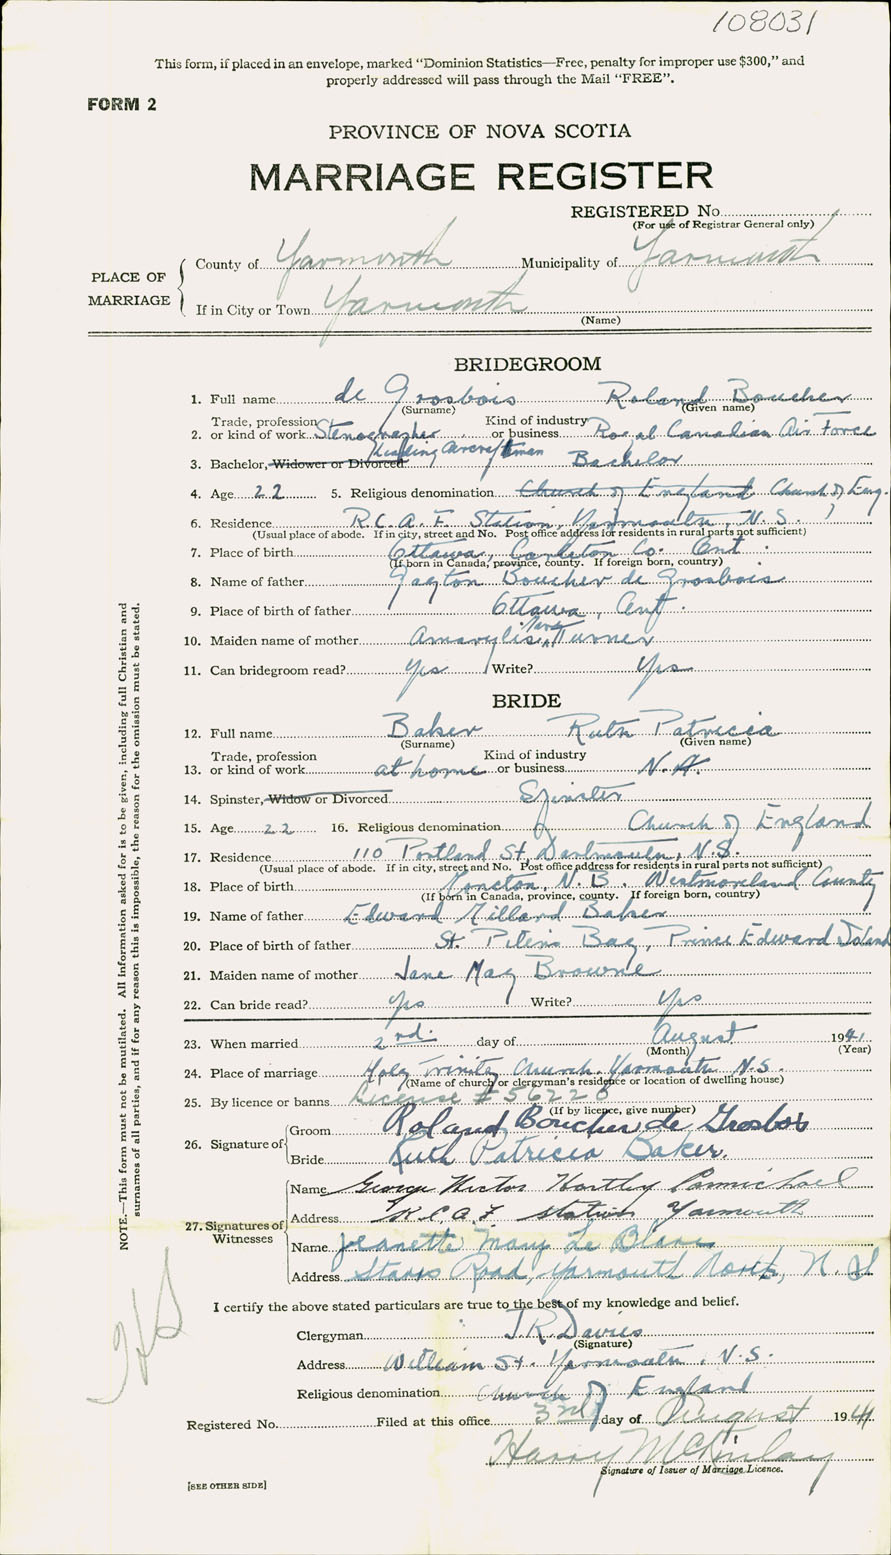 108031
This form, if placed in an envelope, marked "Dominion Statistics—Free, penalty for improper use $300," and
properly addressed will pass through the Mail "FREE".
FORM 2
PROVINCE OF NOVA SCOTIA
MARRIAGE REGISTER
REGISTERED No.
(For use of Registrar General only)
PLACE OF MARRIAGE
County of Yarmouth Municipality of Yarmouth
If in City or Town Yarmouth
(Name)
BRIDEGROOM
1. Full name de Grosbois Roland Boucher
(Surname) (Given name)
2. Trade, profession or kind of work Stenographer Leading Aircraftman Kind of industry or business Royal Canadian Air Force
3. Bachelor, Widower or Divorced Bachelor
4. Age 22 5. Religious denomination Church of England Church of Eng.
6. Residence R.C.A.F. Station, Yarmouth, N.S.
(Usual place of abode. If in city, street and No. Post office address for residents in rural parts not sufficient)
7. Place of birth Ottawa, Carleton Co. Ont.
(If born in Canada, province, county. If foreign born, country)
8. Name of father Boucher de Grosbois
9. Place of birth of father Ottawa, Ont.
10. Maiden name of mother Turner
11. Can bridegroom read? Yes Write? Yes
BRIDE
12. Full name Baker Ruth Patricia
(Surname) (Given name)
13. Trade, profession or kind of work at home Kind of industry or business
14. Spinster, Widow or Divorced Spinster
15. Age 22 16. Religious denomination Church of England
17. Residence 110 Portland St, Dartmouth, N.S.
(Usual place of abode. If in city, street and No. Post office address for residents in rural parts not sufficient)
18. Place of birth Moncton, N.B. Westmoreland County
(If born in Canada, province, county. If foreign born, country)
19. Name of father Edward Millard Baker
20. Place of birth of father St. Peter's Bay, Prince Edward Island
21. Maiden name of mother Jane May Browne
22. Can bride read? Yes Write? Yes
23. When married 2nd. day of August 1941
(Month) (Year)
24. Place of marriage Holy Trinity Church, Yarmouth N.S.
(Name of church or clergyman's residence or location of dwelling house)
25. By licence or banns License # 56228
(If by licence, give number)
26. Signature of Groom Roland Boucher de Grosbois
Bride Ruth Patricia Baker.
27. Signatures of Witnesses
Name George Hector Hartley
Address R.C.A.F. Station Yarmouth
Name Jeanette Mary Le Blanc
Address Starrs Road, Yarmouth North, N.S
I certify the above stated particulars are true to the best of my knowledge and belief.
Clergyman J.R. Davies
(Signature)
Address William St. Yarmouth, N.S.
Religious denomination Church of England
Registered No. Filed at this office 3rd day of August 1941
Harry McKinlay
Signature of Issuer of Marriage Licence.
[SEE OTHER SIDE]
NOTE.—This form must not be mutilated. All information asked for is to be given, including full Christian and
surnames of all parties, and if for any reason this is impossible, the reason for the omission must be stated.